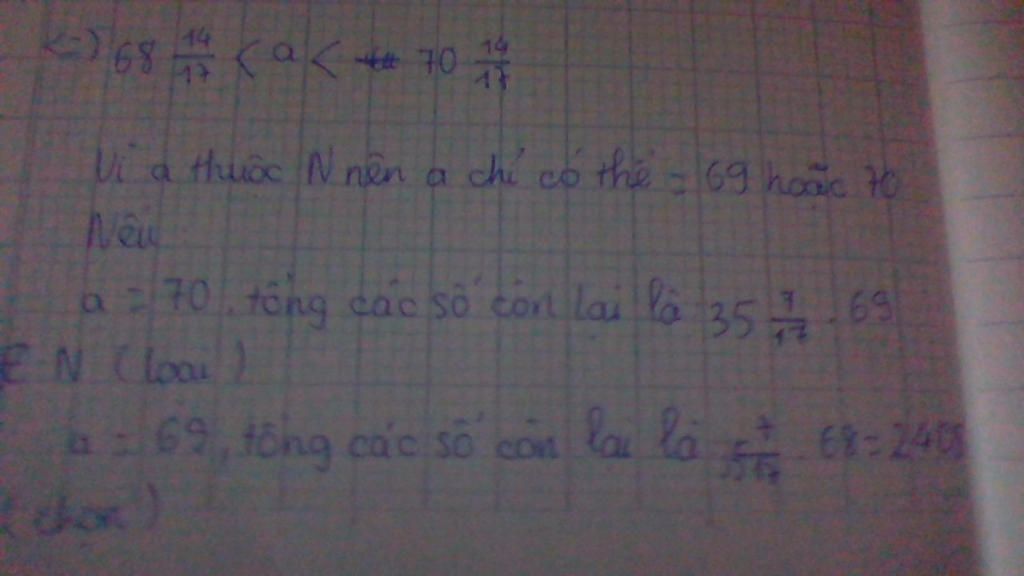 <=> 68 14/17 < a < 70 14/17
Vì a thuộc N nên a chỉ có thể = 69 hoặc 70
Nếu
a = 70, tổng các số còn lại là 35 7/17 . 69
∉ N (loại)
a = 69, tổng các số còn lại là 35 7/17 . 68 = 2408
(chọn)